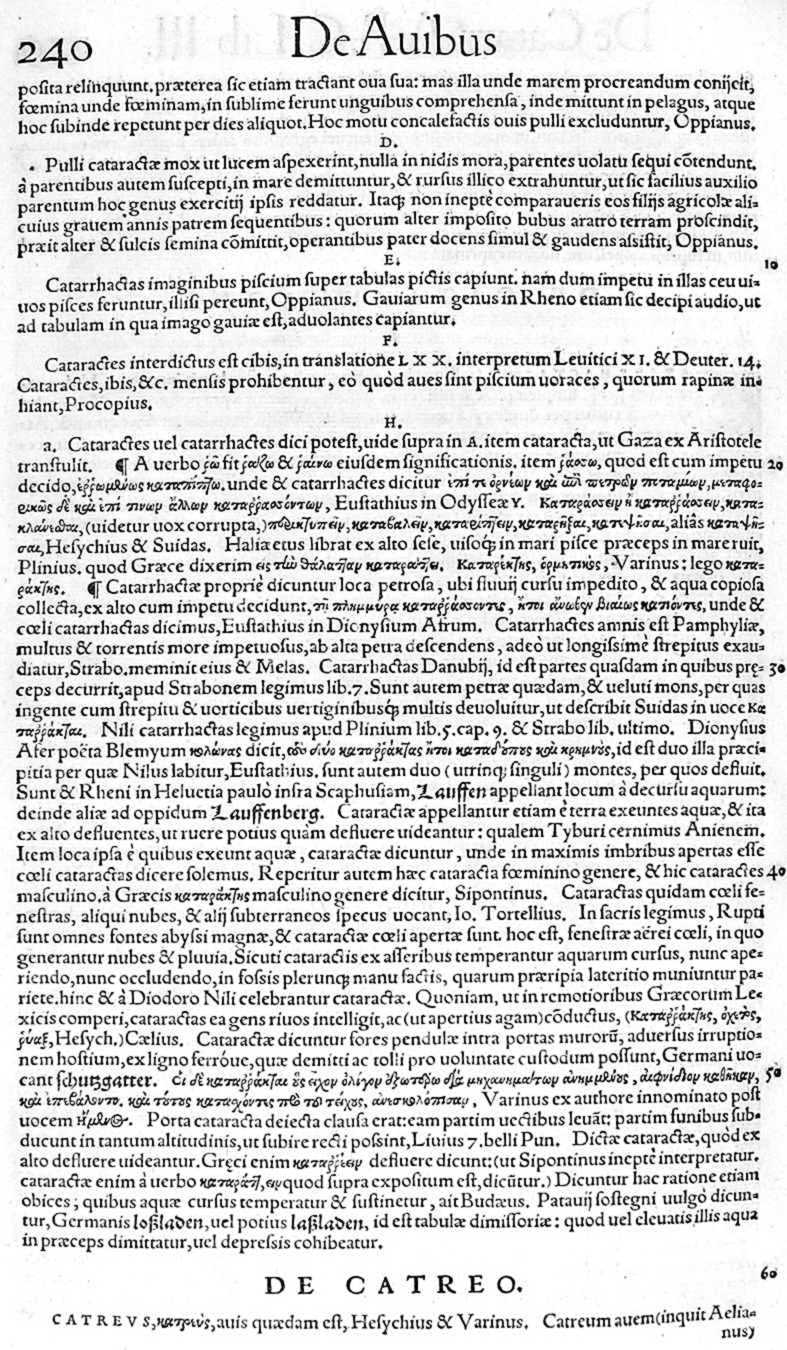 240 De Auibus
posita relinquunt. præterea sic etiam tractant oua sua: mas illa unde marem procreandum conijcit,
fœmina unde fœminam, in sublime ferunt unguibus comprehensa, inde mittunt in pelagus, atque
hoc subinde repetunt per dies aliquot. Hoc motu concalefactis ouis pulli excluduntur, Oppianus.
D.
Pulli cataractæ mox ut lucem aspexerint, nulla in nidis mora, parentes uolatu sequi cōtendunt.
à parentibus autem suscepti, in mare demittuntur, & rursus illico extrahuntur, ut sic facilius auxilio
parentum hoc genus exercitij ipsis reddatur. Itaq; non ineptè comparaueris eos filijs agricolæ ali-
cuius grauem annis patrem sequentibus: quorum alter imposito bubus aratro terram proscindit,
præit alter & sulcis semina cōmittit, operantibus pater docens simul & gaudens assistit, Oppianus.
E. 10
Catarrhactas imaginibus piscium super tabulas pictis capiunt. nam dum impetu in illas ceu ui-
uos pisces feruntur, illisi pereunt, Oppianus. Gauiarum genus in Rheno etiam sic decipi audio, ut
ad tabulam in qua imago gauiæ est, aduolantes capiantur.
F.
Cataractes interdictus est cibis, in translatione LXX. interpretum Leuitici XI. & Deuter. 14.
Cataractes, ibis, &c. mensis prohibentur, eò quòd aues sint piscium uoraces, quorum rapinæ in-
hiant, Procopius.
H.
a. Cataractes uel catarrhactes dici potest, uide supra in A. item cataracta, ut Gaza ex Aristotele
transtulit. ¶ A uerbo ῥῶ fit ῥαΐζω & ῥαίνω eiusdem significationis. item ῥάσσω, quod est cum impetu 20
decido, unde & catarrhactes dicitur
Eustathius in Odysseæ Υ. Καταράσσειν ἢ καταῤῥάσσειν,
(uidetur uox corrupta,) καταβαλεῖν, aliâs
Hesychius & Suidas. Haliæetus librat ex alto sese, uisoq; in mari pisce præceps in mare ruit,
Plinius. quod Græce dixerim εἰς τὼ θάλατταν Varinus: lego κατα-
ράκτης. ¶ Catarrhactæ propriè dicuntur loca petrosa, ubi fluuij cursu impedito, & aqua copiosa
collecta, ex alto cum impetu decidunt, τῇ πλημμύρᾳ καταῤῥάσσοντες, ἤτοι ἄνωθεν βιαίως κατιόντες, unde &
cœli catarrhactas dicimus, Eustathius in Dionysium Afrum. Catarrhactes amnis est Pamphyliæ,
multus & torrentis more impetuosus, ab alta petra descendens, adeò ut longissimè strepitus exau-
diatur, Strabo. meminit eius & Melas. Catarrhactas Danubij, id est partes quasdam in quibus prę- 30
ceps decurrit, apud Strabonem legimus lib. 7. Sunt autem petræ quædam, & ueluti mons, per quas
ingente cum strepitu & uorticibus uertiginibusq; multis deuoluitur, ut describit Suidas in uoce Κα
ταῤῥάκται. Nili catarrhactas legimus apud Plinium lib. 5. cap. 9. & Strabo lib. ultimo. Dionysius
Afer poëta Blemyum κολώνας dicit, τοὺς δύο καταῤῥάκτας ἤτοι καταδούπους καὶ κρημνούς, id est duo illa præci-
pitia per quæ Nilus labitur, Eustathius. sunt autem duo (utrinq; singuli) montes, per quos defluit.
Sunt & Rheni in Heluetia paulò infra Scaphusiam, Lauffen appellant locum à decursu aquarum:
deinde aliæ ad oppidum Lauffenberg. Cataractæ appellantur etiam è terra exeuntes aquæ, & ita
ex alto defluentes, ut ruere potius quàm defluere uideantur: qualem Tyburi cernimus Anienem.
Item loca ipsa è quibus exeunt aquæ, cataractæ dicuntur, unde in maximis imbribus apertas esse
cœli cataractas dicere solemus. Reperitur autem hæc cataracta fœminino genere, & hic cataractes 40
masculino. à Græcis καταράκτης masculino genere dicitur, Sipontinus. Cataractas quidam cœli fe-
nestras, aliqui nubes, & alij subterraneos specus uocant, Io. Tortellius. In sacris legimus, Rupti
sunt omnes fontes abyssi magnæ, & cataractæ cœli apertæ sunt. hoc est, fenestræ aërei cœli, in quo
generantur nubes & pluuia. Sicuti cataractis ex asseribus temperantur aquarum cursus, nunc ape-
riendo, nunc occludendo, in fossis plerunq; manu factis, quarum præripia lateritio muniuntur pa-
riete. hinc & à Diodoro Nili celebrantur cataractæ. Quoniam, ut in remotioribus Græcorum Le-
xicis comperi, cataractas ea gens riuos intelligit, ac (ut apertius agam) cōductus, (Καταῤῥάκτης, ὀχετός,
ῥύαξ, Hesych.) Cælius. Cataractæ dicuntur fores pendulæ intra portas murorū, aduersus irruptio-
nem hostium, ex ligno ferróue, quæ demitti ac tolli pro uoluntate custodum possunt, Germani uo-
cant schutzgatter. Οἱ δὲ καταῤῥάκται οὓς εἶχον ὀλίγον 50
Varinus ex authore innominato post
uocem Porta cataracta deiecta clausa erat: eam partim uectibus leuāt: partim funibus sub-
ducunt in tantum altitudinis, ut subire recti possint, Liuius 7. belli Pun. Dictæ cataractæ, quòd ex
alto defluere uideantur. Gręci enim καταῤῥεῖν defluere dicunt: (ut Sipontinus ineptè interpretatur.
cataractæ enim à uerbo quod supra expositum est, dicūtur.) Dicuntur hac ratione etiam
obices; quibus aquæ cursus temperatur & sustinetur, ait Budæus. Patauij sostegni uulgò dicun-
tur, Germanis loßladen, uel potius laßladen, id est tabulæ dimissoriæ: quod uel eleuatis illis aqua
in præceps dimittatur, uel depressis cohibeatur.
DE CATREO. 60
CATREVS, κατρεύς, auis quædam est, Hesychius & Varinus. Catreum auem (inquit Aelia-
nus)